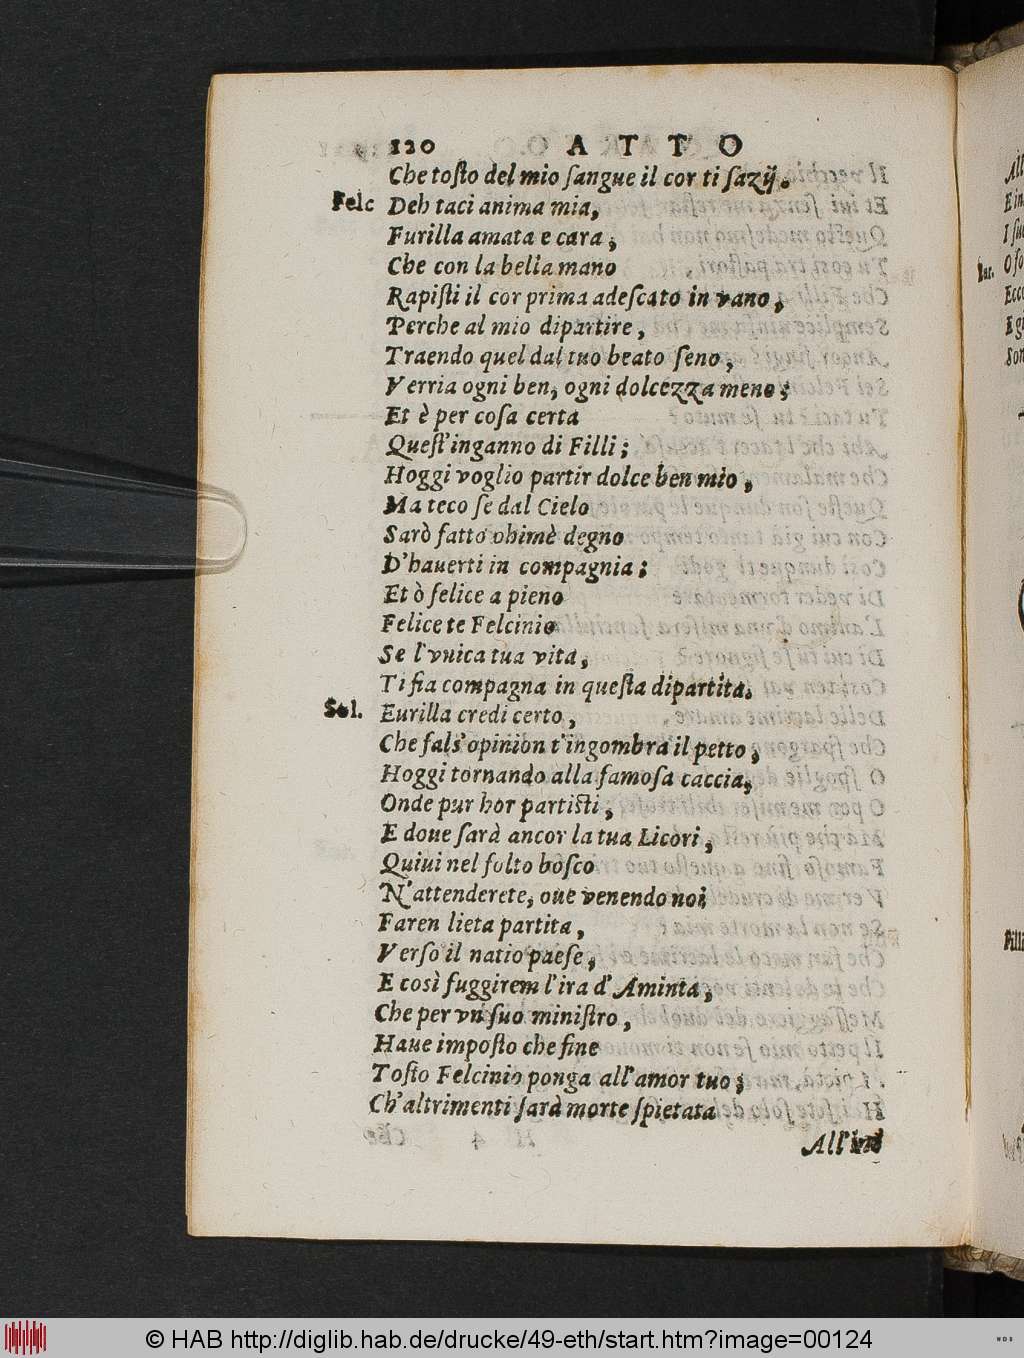 120 ATTO
Che tosto del mio sangue il cor ti sazij.
Felc Deh taci anima mia,
Furilla amata e cara;
Che con la bella mano
Rapisti il cor prima adescato in vano,
Perche al mio dipartire,
Traendo quel dal tuo beato seno,
Verria ogni ben, ogni dolcezza meno;
Et è per cosa certa
Quest'inganno di Filli;
Hoggi voglio partir dolce ben mio,
Ma teco se dal Cielo
Sarò fatto ohimè degno
D'hauerti in compagnia;
Et ò felice a pieno
Felice te Felcinio
Se l'vnica tua vita,
Ti fia compagna in questa dipartita.
Sel. Eurilla credi certo,
Che fals'opinion t'ingombra il petto;
Hoggi tornando alla famosa caccia,
Onde pur hor partisti,
E doue sarà ancor la tua Licori,
Quiui nel folto bosco
N'attenderete, oue venendo noi
Faren lieta partita,
Verso il natio paese,
E così fuggirem l'ira d'Aminta,
Che per vn suo ministro,
Haue imposto che fine
Tosto Felcinio ponga all'amor tuo;
Ch'altrimenti sarà morte spietata
All'
© HAB http://diglib.hab.de/drucke/49-eth/start.htm?image=00124